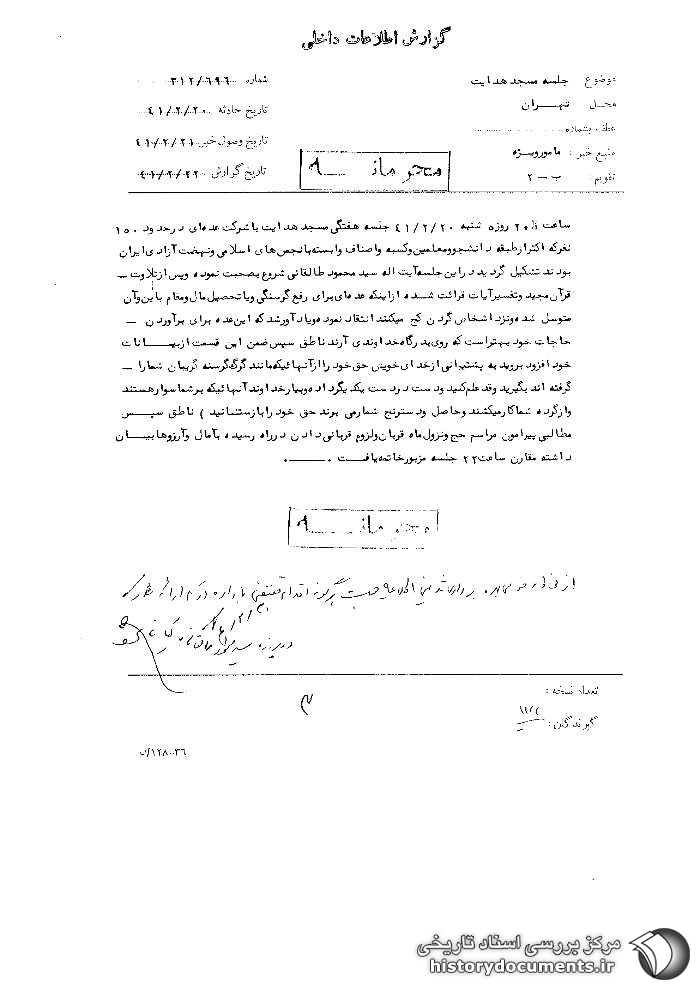 گزارش اطلاعات داخلی
موضوع جلسه مسجد هدایت
شماره ۳۱۲/۶۹۶
محل تهران
تاریخ حادثه ۴۱/۲/۲۰
عطف بشماره
تاریخ وصول خبر ۴۱/۲/۲۱
منبع خبر : مامور ویژه
تاریخ گزارش ۴۱/۲/۲۲
تقویم ب - ۲
محرمانه
ساعت ۲۰٫۵ روزه شنبه ۴۱/۲/۲۰ جلسه هفتگی مسجد هدایت با شرکت عده‌ای در حدود ۱۵۰
نفر که اکثر از طبقه دانشجو و معلمین و کسبه و اصناف وابسته بانجمن‌های اسلامی و نهضت آزادی ایران
بودند تشکیل گردید در این جلسه آیت اله سید محمود طالقانی شروع بصحبت نموده و پس از تلاوت ـ
قرآن مجید و تفسیر آیات قرائت شده از اینکه عده‌ای برای رفع گرسنگی و یا تحصیل مال و مقام باین و آن
متوسل شده و نزد اشخاص گردن کج میکنند انتقاد نموده و یادآور شد که این عده برای برآوردن ـ
حاجات خود بهتر است که روی بدرگاه خداوندی آرند ناطق سپس ضمن این قسمت از بیانات
خود افزود بروید به پشتیبانی از خدای خویش حق خود را از آنهائیکه مانند گرگ گرسنه گریبان شما را ـ
گرفته اند بگیرید و قد علم کنید و دست در دست یکدیگر داده و بیار خداوند آنهائیکه بر شما سوار هستند
و از گرده شما کار میکشند و حاصل و دسترنج شما را می برند حق خود را باز ستانید ) ناطق سپس
مطالبی پیرامون مراسم حج و نزول ماه قربان و لزوم قربانی دادن در راه رسیده بآمال و آرزوها بیان
داشته مقارن ساعت ۲۲ جلسه مزبور خاتمه یافت .
محرمانه
تعداد نسخه :
گیرندگان :
۱۲۸-۳۶/ب
مرکز بررسی اسناد تاریخی
historydocuments.ir